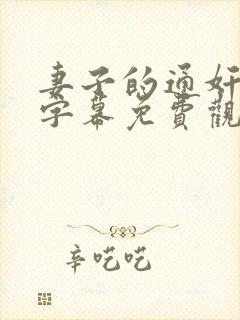 妻子的通奸
字幕免費觀
辛吃吃